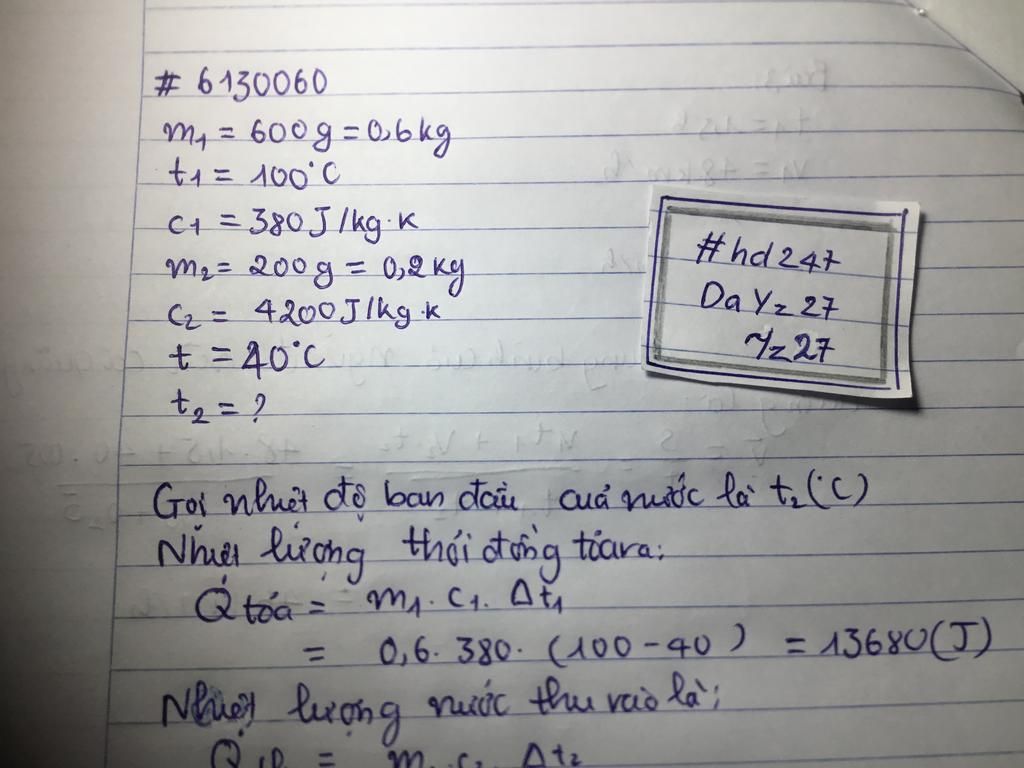 # 6130060
m₁ = 600g = 0,6 kg
t₁ = 100°C
c₁ = 380 J/kg.k
m₂ = 200g = 0,2 kg
c₂ = 4200 J/kg.k
t = 40°C
t₂ = ?
#hd247
Da Yz 27
Yz 27
Gọi nhiệt độ ban đầu cuả nước là t₂(°C)
Nhiệt lượng thỏi đồng tỏa ra:
Q tỏa = m₁. c₁. Δt₁
= 0,6. 380. (100 - 40) = 13680 (J)
Nhiệt lượng nước thu vào là:
= m c₂ Δt₂